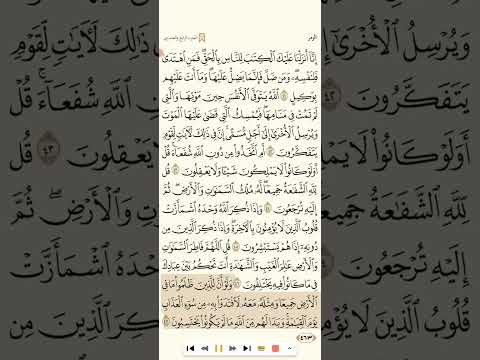 الزمر الجزء الرابع والعشرون
إِنَّآ أَنزَلۡنَا عَلَيۡكَ ٱلۡكِتَٰبَ لِلنَّاسِ بِٱلۡحَقِّۖ فَمَنِ ٱهۡتَدَىٰ
فَلِنَفۡسِهِۦۖ وَمَن ضَلَّ فَإِنَّمَا يَضِلُّ عَلَيۡهَاۖ وَمَآ أَنتَ عَلَيۡهِم
بِوَكِيلٍ ٤١ ٱللَّهُ يَتَوَفَّى ٱلۡأَنفُسَ حِينَ مَوۡتِهَا وَٱلَّتِي
لَمۡ تَمُتۡ فِي مَنَامِهَاۖ فَيُمۡسِكُ ٱلَّتِي قَضَىٰ عَلَيۡهَا ٱلۡمَوۡتَ
وَيُرۡسِلُ ٱلۡأُخۡرَىٰٓ إِلَىٰٓ أَجَلٖ مُّسَمًّىۚ إِنَّ فِي ذَٰلِكَ لَأٓيَٰتٖ لِّقَوۡمٖ
يَتَفَكَّرُونَ ٤٢ أَمِ ٱتَّخَذُواْ مِن دُونِ ٱللَّهِ شُفَعَآءَۚ قُلۡ
أَوَلَوۡ كَانُواْ لَا يَمۡلِكُونَ شَيۡـٔٗا وَلَا يَعۡقِلُونَ ٤٣ قُل
لِّلَّهِ ٱلشَّفَٰعَةُ جَمِيعٗاۖ لَّهُۥ مُلۡكُ ٱلسَّمَٰوَٰتِ وَٱلۡأَرۡضِۖ ثُمَّ
إِلَيۡهِ تُرۡجَعُونَ ٤٤ وَإِذَا ذُكِرَ ٱللَّهُ وَحۡدَهُ ٱشۡمَأَزَّتۡ
قُلُوبُ ٱلَّذِينَ لَا يُؤۡمِنُونَ بِٱلۡأٓخِرَةِۖ وَإِذَا ذُكِرَ ٱلَّذِينَ مِن
دُونِهِۦٓ إِذَا هُمۡ يَسۡتَبۡشِرُونَ ٤٥ قُلِ ٱللَّهُمَّ فَاطِرَ ٱلسَّمَٰوَٰتِ
وَٱلۡأَرۡضِ عَٰلِمَ ٱلۡغَيۡبِ وَٱلشَّهَٰدَةِ أَنتَ تَحۡكُمُ بَيۡنَ عِبَادِكَ
فِي مَا كَانُواْ فِيهِ يَخۡتَلِفُونَ ٤٦ وَلَوۡ أَنَّ لِلَّذِينَ ظَلَمُواْ مَا فِي
ٱلۡأَرۡضِ جَمِيعٗا وَمِثۡلَهُۥ مَعَهُۥ لَٱفۡتَدَوۡاْ بِهِۦ مِن سُوٓءِ ٱلۡعَذَابِ
يَوۡمَ ٱلۡقِيَٰمَةِۚ وَبَدَا لَهُم مِّنَ ٱللَّهِ مَا لَمۡ يَكُونُواْ يَحۡتَسِبُونَ ٤٧
٤٦٣